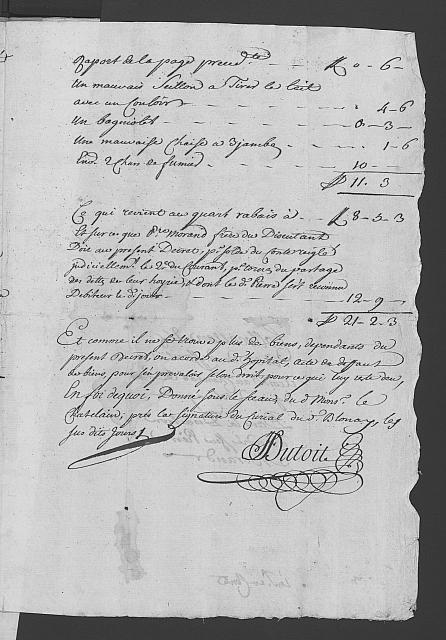 Raport de la page preced.te — — £ 0 - 6 -
un mauvais Seillon a Tirer le lait
avec un Couloir — — — 4 - 6
un bagnolet — — 0 - 3 -
Une mauvaise Chaise a 3 jambes — 1 - 6
Env. 2 Chars de fumier — — 10 -
₶ 11. 3
Ce qui revient au quart rabais à — £ 8 - 5 - 3
Et sur ce que P.re Morand frere du Discutant
Doit au present Decret, p.r solde du Conte reglé
judiciellem.t le 2.e du Courant, p.r du partage
des dettes de leur hoyrie, & dont led.t Pierre s'est reconnu
Debiteur le dit jour — — 12 - 9 -
₶ 21 - 2. 3
Et comme il ne se trouve plus de biens, dependants du
present Decret, on accorde au d.t hopital, acte de deffaut
de biens, pour s'en prevaloir selon droit, pour ce qui luy reste deu,
En foi de quoi, Donné sous le sceau, du d.t Mons.r le
Chatelain, & la signature du Curial du d.t Blonay, les
sus dits Jours
Dutoit